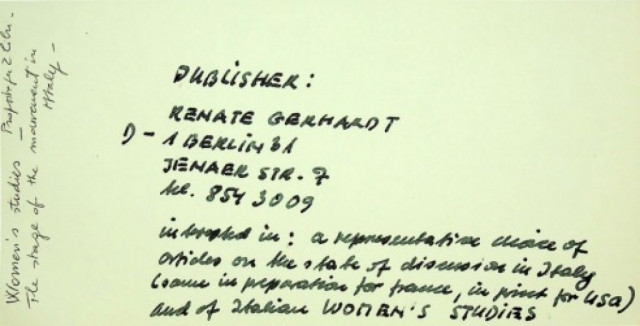 PUBLISHER:
RENATE GERHARDT
D-1 BERLIN 31
JENAER STR. 7
tel. 854 3009
interested in: a representative choice of
articles on the state of discussion in Italy
(same in preparation for france, in print for USA)
and of Italian WOMEN'S STUDIES
Women's studies -
The stage of the movement in
Italy -